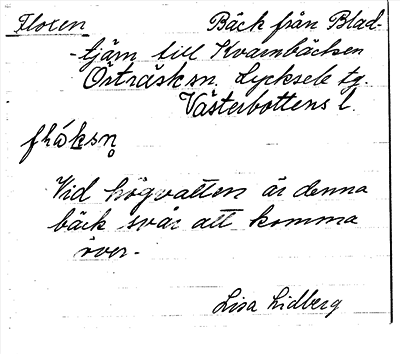 Floxen Bäck från Blad-
-tjärn till Kvarnbäcken
Örträsk sn. Lycksele tg.
Västerbottens l.
flóksn̥
Vid högvatten är denna
bäck svår att komma
över.
Lisa Lidberg